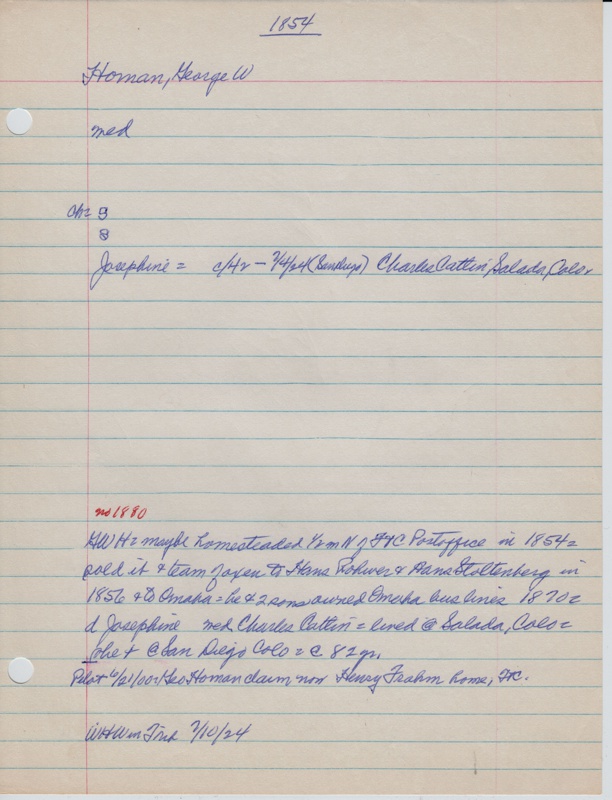 1854
Homan, George W
med
ch = 9
8
Josephine = c/42 - 7/4/24 (San Diego) Charles Catlin, Salada, Colo.
no 1880
GWH = maybe homesteaded 1/2 m N of Ft C Postoffice in 1854 =
sold it & team of oxen to Hans Rohwer & Hans Stoltenberg in
1856 & to Omaha = he & 2 sons owned Omaha bus lines 1870 =
d Josephine med Charles Catlin = lived @ Salada, Colo =
she + @ San Diego Colo = @ 82 yr.
Pilot 6/21/00: Geo Homan claim now Henry Frahm home, Ft C.
WHW in Trib 7/10/24